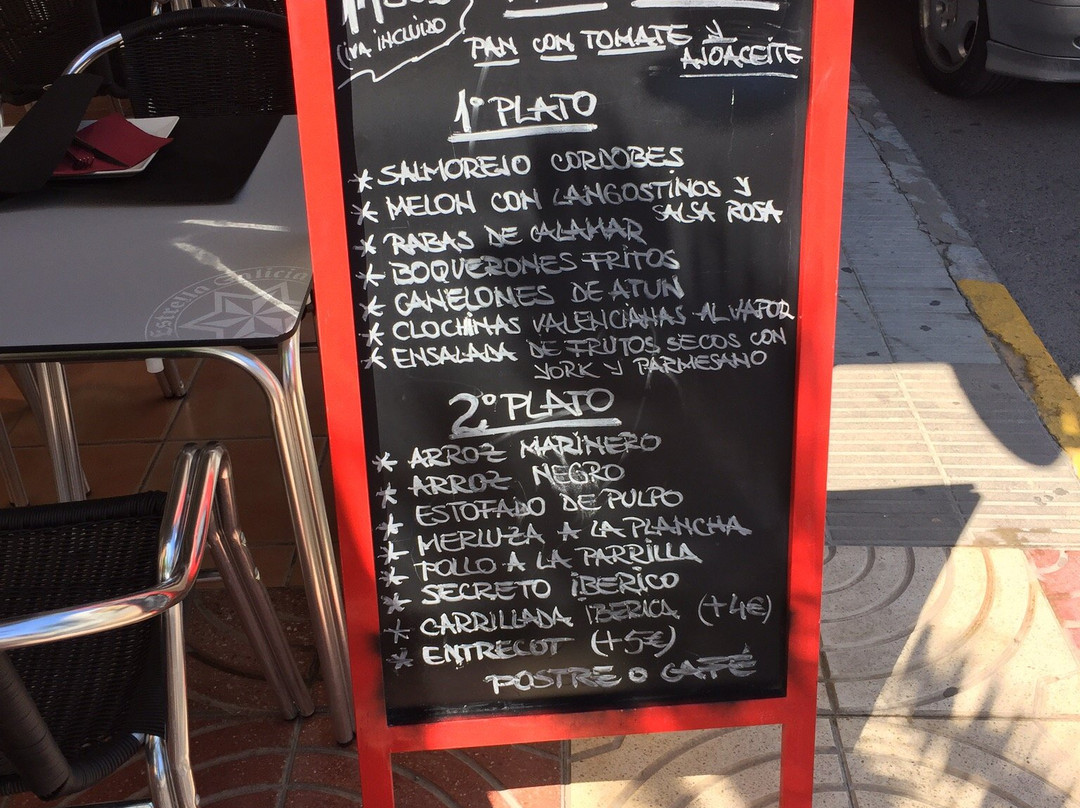 (IVA INCLUIDO
PAN CON TOMATE Y
AJOACEITE
1º PLATO
* SALMOREJO CORDOBES
* MELON CON LANGOSTINOS Y
SALSA ROSA
* RABAS DE CALAMAR
* BOQUERONES FRITOS
* CANELONES DE ATUN
* CLOCHINAS VALENCIANAS AL VAPOR
* ENSALADA DE FRUTOS SECOS CON
YORK Y PARMESANO
2º PLATO
* ARROZ MARINERO
* ARROZ NEGRO
* ESTOFADO DE PULPO
* MERLUZA A LA PLANCHA
* POLLO A LA PARRILLA
* SECRETO IBERICO
* CARRILLADA IBERICA (+4€)
* ENTRECOT (+5€)
POSTRE O CAFÉ
Estrella Galicia